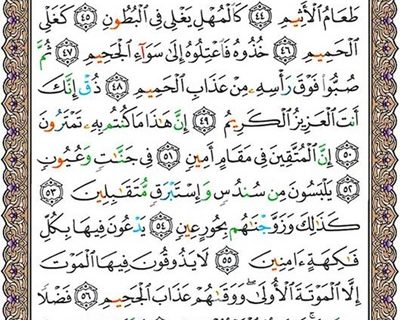 طَعَامُ ٱلْأَثِيمِ ٤٤ كَٱلْمُهْلِ يَغْلِى فِى ٱلْبُطُونِ ٤٥ كَغَلْىِ
ٱلْحَمِيمِ ٤٦ خُذُوهُ فَٱعْتِلُوهُ إِلَىٰ سَوَآءِ ٱلْجَحِيمِ ٤٧ ثُمَّ
صُبُّوا۟ فَوْقَ رَأْسِهِۦ مِنْ عَذَابِ ٱلْحَمِيمِ ٤٨ ذُقْ إِنَّكَ
أَنتَ ٱلْعَزِيزُ ٱلْكَرِيمُ ٤٩ إِنَّ هَٰذَا مَا كُنتُم بِهِۦ تَمْتَرُونَ
٥٠ إِنَّ ٱلْمُتَّقِينَ فِى مَقَامٍ أَمِينٍ ٥١ فِى جَنَّٰتٍ وَعُيُونٍ
٥٢ يَلْبَسُونَ مِن سُندُسٍ وَإِسْتَبْرَقٍ مُّتَقَٰبِلِينَ ٥٣
كَذَٰلِكَ وَزَوَّجْنَٰهُم بِحُورٍ عِينٍ ٥٤ يَدْعُونَ فِيهَا بِكُلِّ
فَٰكِهَةٍ ءَامِنِينَ ٥٥ لَا يَذُوقُونَ فِيهَا ٱلْمَوْتَ
إِلَّا ٱلْمَوْتَةَ ٱلْأُولَىٰ ۖ وَوَقَىٰهُمْ عَذَابَ ٱلْجَحِيمِ ٥٦ فَضْلًا